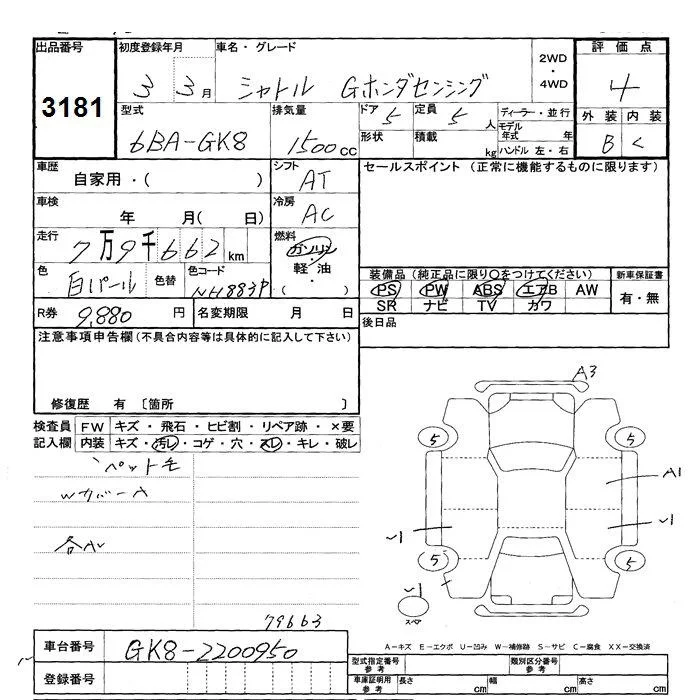 出品番号 初度登録年月 車名・グレード 2WD・4WD 評価点
3181 3 3月 シャトル Gホンダセンシング 4
型式 排気量 ドア 5 定員 5人 ディーラー・並行 外装 内装
6BA-GK8 1500cc 形状 積載 kg モデル年式 年 B C
ハンドル 左・右
車歴 自家用・( ) シフト AT セールスポイント (正常に機能するものに限ります)
車検 年 月( 日) 冷房 AC
走行 7万9千662km 燃料 ガソリン・軽油・( )
色 白パール 色替 色コード NH883P
装備品 (純正品に限り○をつけてください) 新車保証書
PS PW ABS エアB AW 有・無
SR ナビ TV カワ
R券 9,880円 名変期限 月 日 後日品
注意事項申告欄 (不具合内容等は具体的に記入して下さい)
修復歴 有 〔箇所 〕
検査員 FW キズ・飛石・ヒビ割・リペア跡・×要
記入欄 内装 キズ・汚レ・コゲ・穴・スレ・キレ・破レ
ペット毛
WカバーA
各AU
79663
A3
5 5
A1
5 5
スペア
車台番号 GK8-2200950
登録番号
A-キズ E-エクボ U-凹み W-補修跡 S-サビ C-腐食 XX-交換済
型式指定番号 参考 類別区分番号 参考
車庫証明用 参考 長さ cm 幅 cm 高さ cm